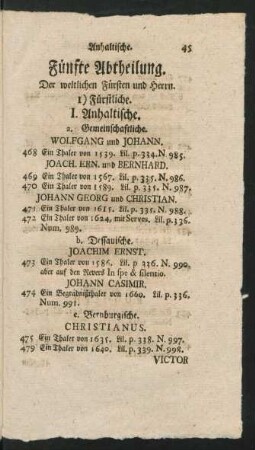 Anhaltische. 45
Fünfte Abtheilung.
Der weltlichen Fürsten und Herrn.
1) Fürstliche.
I. Anhaltische.
a. Gemeinschaftliche.
WOLFGANG und JOHANN.
468 Ein Thaler von 1539. Lil. p. 334. N. 985.
JOACH. ERN. und BERNHARD.
469 Ein Thaler von 1567. Lil. p. 335. N. 986.
470 Ein Thaler von 1589. Lil. p. 335. N. 987.
JOHANN GEORG und CHRISTIAN.
471 Ein Thaler von 1615. Lil. p. 335. N. 988.
472 Ein Thaler von 1624. mit Serven. Lil. p. 336.
Num. 989.
b. Dessauische.
JOACHIM ERNST.
473 Ein Thaler von 1586. Lil. p. 336. N. 990,
aber auf den Revers In spe & silentio.
JOHANN CASIMIR.
474 Ein Begräbnißthaler von 1660. Lil. p. 336.
Num. 991.
c. Bernburgische.
CHRISTIANUS.
475 Ein Thaler von 1635. Lil. p. 338. N. 997.
479 Ein Thaler von 1640. Lil. p. 339. N. 998.
VICTOR